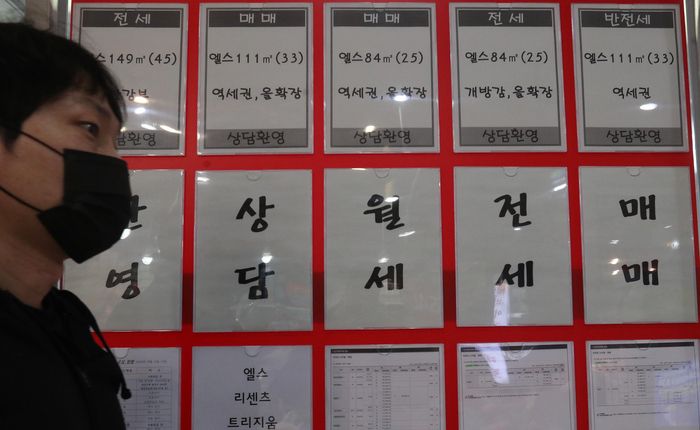 전세
매매
매매
전세
반전세
엘스149㎡(45)
엘스111㎡(33)
엘스84㎡(25)
엘스84㎡(25)
엘스111㎡(33)
역세권,올확장
역세권,올확장
개방감,올확장
역세권
상담환영
상담환영
상담환영
상담환영
상담환영
환영
상담
월세
전세
매매
엘스
리센츠
트리지움